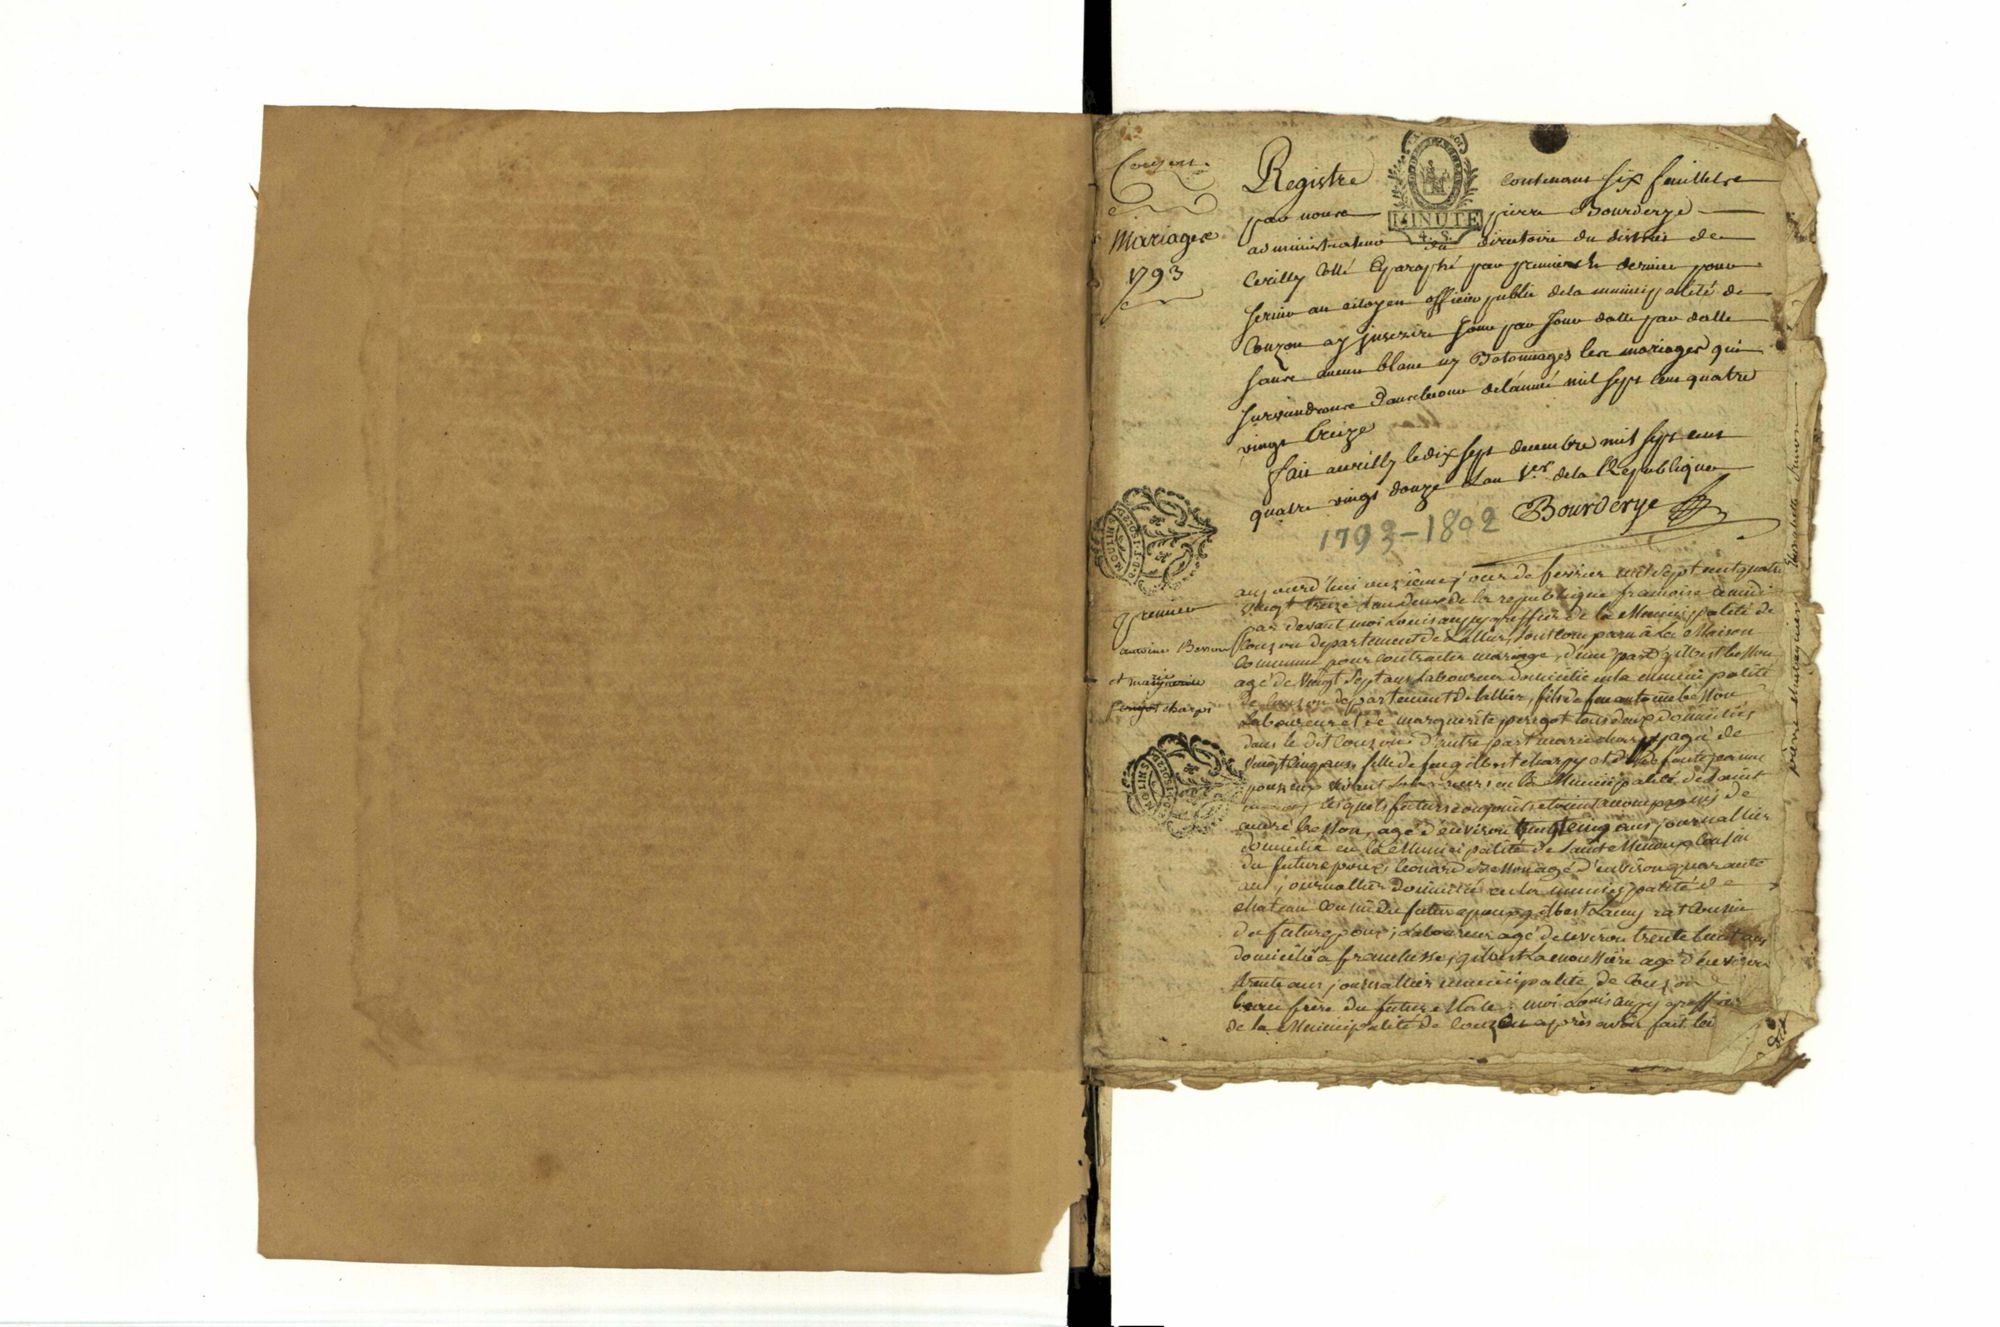 Couzon
Mariages
1793
Registre contenant six feuillets
par nous pierre Bourderye
administrateur du directoire du district de
Cerilly Cotté & paraphé par premier & dernier pour
servir au citoyen officier public de la municipalité de
Couzon a y inscrire jour par jour datte par datte
sans aucun blanc ny Batonnages les mariages qui
surviendrons dans le cour de l'année mil sept cens quatre
vingt treize
fait a cerilly le dix sept decembre mil sept cens
quatre vingt douze L'an 1.er de la Republique
Bourderye
1793-1802
MINUTE
4. S.
MOULINS
premier
antoine Besson
et marguerite
perigot charpi
aujourd'hui onzieme jour de fevrier mil sept cent quatre
vingt treize l'an deux de la republique francoise a midi
par devant moi Louis aupy greffier de la Municipalité de
Couzon departement de Lallier, sont comparu à La Maison
Commune pour contracter mariage, d'une part gilbert besson
agé de vingt sept ans Laboureur domicilié en la municipalité
de Couzon departement de lallier, fils de feu antoine besson
Laboureur et de marguerite perigot tous deux domiciliés
dans le dit Couzon d'autre part marie charpy agé de
vingt cinq ans fille de feu gilbert charpy et de defunte jeanne
en la Municipalité de saint
lesquels futurs conjoints etoient accompagnés de
andré besson, agé d'environ vingt cinq ans journallier
domicilié en la Municipalité de saint Menoux Cousin
du futur epoux, leonard Besson agé d'environ quarante
ans journallier domicilié en la municipalité de
chateau Cousin du futur epoux gilbert Lamy rat Cousin
du futur epoux, Laboureur agé d'environ trente huit ans
domicilié a franchesse, gilbert Lamoussière agé d'environ
trente ans journallier municipalité de Couzon
beau frère du future Mole; moi Louis aupy greffier
de la Municipalité de Couzon après avoir fait lei